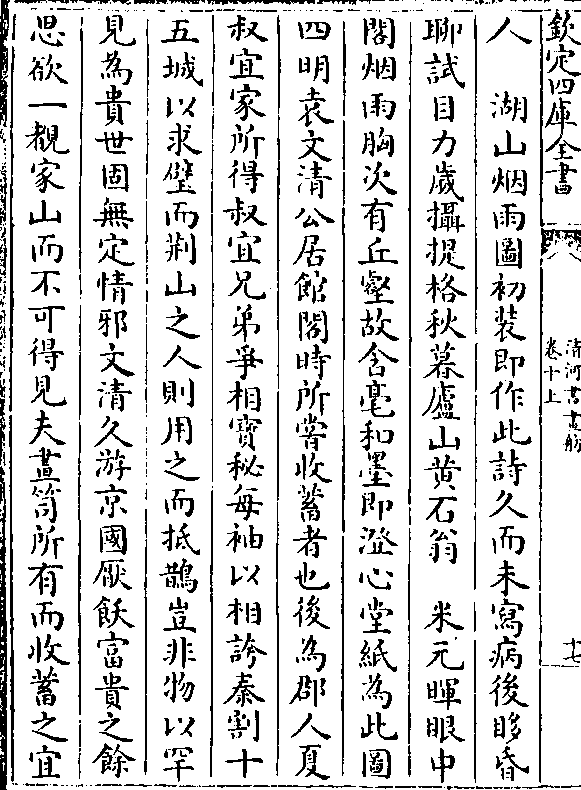 欽定四庫全書
清河書畫舫
卷十上
十七
人　湖山烟雨圖初装即作此詩久而未寫病後眵昏
聊試目力歲攝提格秋暮廬山黄石翁　米元暉眼中
閣烟雨胸次有丘壑故含毫和墨即澄心堂紙為此圖
四明袁文清公居館閣時所嘗收蓄者也後為郡人夏
叔宜家所得叔宜兄弟爭相寶秘每袖以相誇秦割十
五城以求璧而荆山之人則用之而抵鵲豈非物以罕
見為貴世固無定情邪文清久游京國厭飫富貴之餘
思欲一覩家山而不可得見夫畫笥所有而收蓄之宜